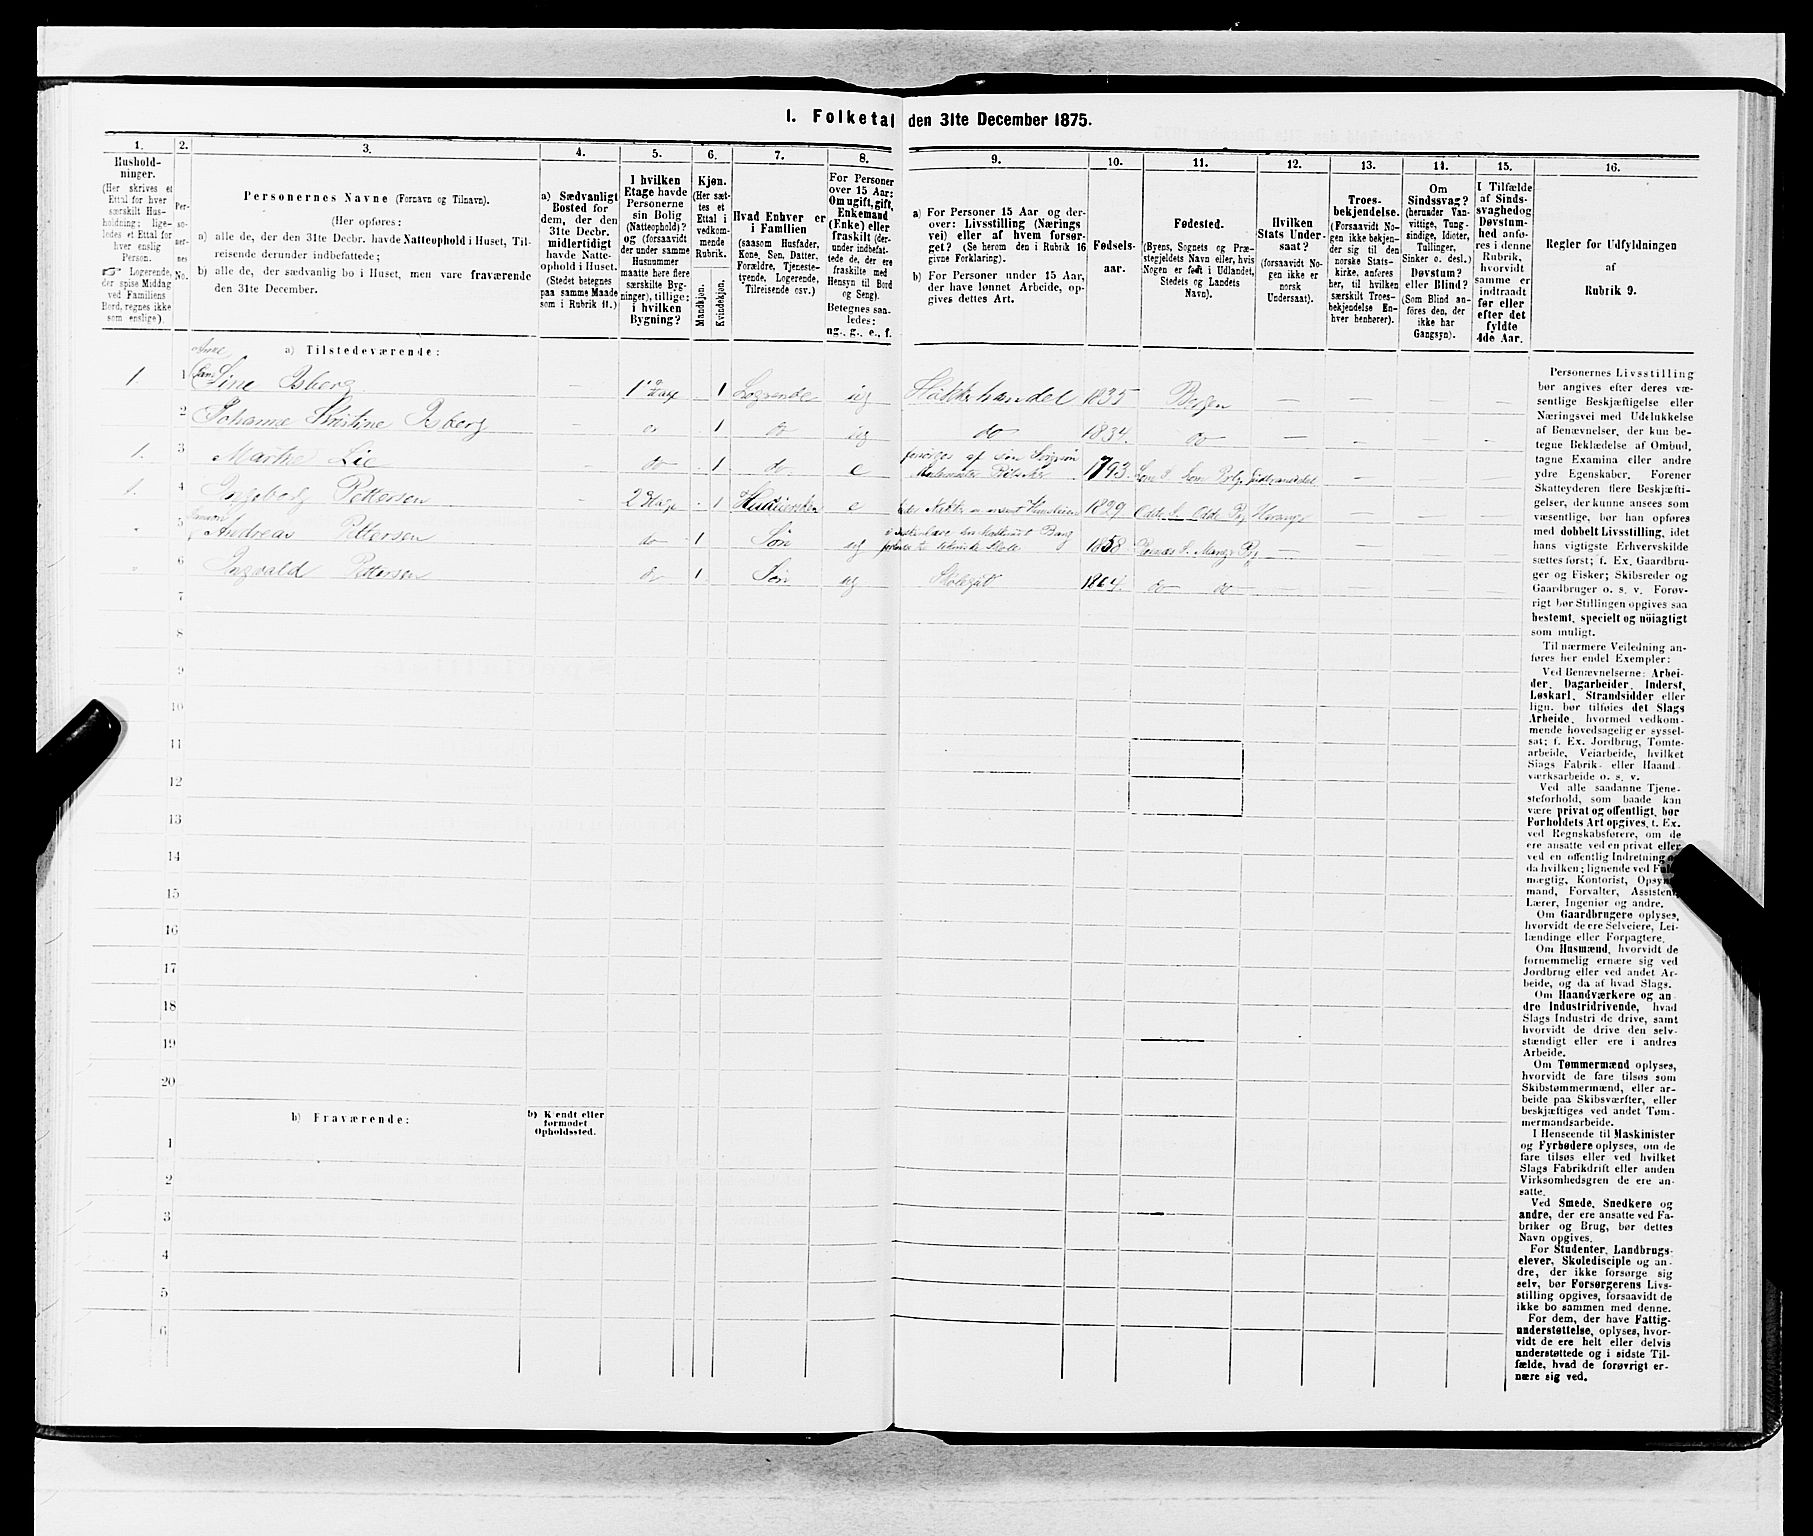 1. Folketal den 31te December 1875.
1.
Hushold-
ninger.
(Her skrives et
Ettal for hver
særskilt Hus-
holdning; lige-
ledes et Ettal for
hver enslig
Person.
☞ Logerende,
der spise Middag
ved Familiens
Bord, regnes ikke
som enslige).
2.
Per-
so-
ner-
nes
No.
3.
Personernes Navne (Fornavn og Tilnavn).
(Her opføres:
a) alle de, der den 31te Decbr. havde Natteophold i Huset, Til-
reisende derunder indbefattede;
b) alle de, der sædvanlig bo i Huset, men vare fraværende
den 31te December.
4.
a) Sædvanligt
Bosted for
dem, der den
31te Decbr.
midlertidigt
havde Natte-
ophold i Huset.
(Stedet betegnes
paa samme Maade
som i Rubrik 11.)
5.
I hvilken
Etage havde
Personerne
sin Bolig
(Natteophold)?
og (forsaavidt
der under samme
Husnummer
maatte høre flere
særskilte Byg-
ninger), tillige:
i hvilken
Bygning?
6.
Kjøn.
(Her sæt-
tes et
Ettal i
vedkom-
mende
Rubrik.
Mandkjøn.
Kvindekjøn.
7.
Hvad Enhver er
i Familien
(saasom Husfader,
Kone, Søn, Datter,
Forældre, Tjeneste-
tyende, Logerende,
Tilreisende osv.)
8.
For Personer
over 15 Aar:
Om ugift, gift,
Enkemand
(Enke) eller
fraskilt (der-
under indbefat-
tede de, der ere
fraskilte med
Hensyn til Bord
og Seng).
Betegnes saa-
ledes:
ug., g., e., f.
9.
a) For Personer 15 Aar og der-
over: Livsstilling (Nærings
vei) eller af hvem forsør-
get? (Se herom den i Rubrik 16
givne Forklaring).
b) For Personer under 15 Aar,
der have lønnet Arbeide, op-
gives dettes Art.
10.
Fødsels-
aar.
11.
Fødested.
(Byens, Sognets og Præ-
stegjeldets Navn eller, hvis
Nogen er født i Udlandet,
Stedets og Landets
Navn).
12.
Hvilken
Stats Under-
saat?
(forsaavidt No-
gen ikke er
norsk
Undersaat).
13.
Troes-
bekjendelse.
(Forsaavidt No-
gen ikke bekjen-
der sig til den
norske Stats-
kirke, anføres
her, til hvilken
særskilt Troes-
bekjendelse En-
hver henhører).
14.
Om
Sindssvag?
(herunder Van-
vittige, Tung-
sindige, Idioter,
Tullinger,
Sinker o. desl.)
Døvstum?
eller Blind?
(Som Blind an-
føres den, der
ikke har
Gangsyn).
15.
I Tilfælde
af Sinds-
svaghed og
Døvstum-
hed anfø-
res i denne
Rubrik,
hvorvidt
samme er
indtraadt
før eller
efter det
fyldte
4de Aar.
16.
Regler for Udfyldningen
af
Rubrik 9.
a) Tilstedeværende:
1. 1 Sine Isberg – 1 1 Logerende ug Høkkerhandel 1835 Bergen – – – –
2 Johanne Kristine Isberg – 1 do ug do 1834. do – – – –
1. 3 Marthe Lie – do 1 do e 1793
1. 4 Ingeborg Pettersen – 2 Etage 1 e 1829
5 Andreas Pettersen do 1 Søn ug 1858
6 Ingvald Pettersen 1 Søn ug 1864. do do
7
8
9
10
11
12
13
14
15
16
17
18
19
20
b) Fraværende:
b) Kjendt eller
formodet
Opholdssted.
1
2
3
4
5
6
Personernes Livsstilling
bør angives efter deres væ-
sentlige Beskjæftigelse eller
Næringsvei med Udelukkelse
af Benævnelser, der kun be-
tegne Beklædelse af Ombud,
tagne Examina eller andre
ydre Egenskaber. Forener
Skatteyderen flere Beskjæfti-
gelser, der kunne ansees som
væsentlige, bør han opføres
med dobbelt Livsstilling, idet
hans vigtigste Erhvervskilde
sættes først; f. Ex. Gaardbru-
ger og Fisker; Skibsreder og
Gaardbruger o. s. v. Forøv-
rigt bør Stillingen opgives saa
bestemt, specielt og nøiagtigt
som muligt.
Til nærmere Veiledning an-
føres her endel Exempler:
Ved Benævnelserne: Arbei-
der, Dagarbeider, Inderst,
Løskarl, Strandsidder eller
lign. bør tilføies det Slags
Arbeide, hvormed vedkom-
mende hovedsagelig er syssel-
sat; f. Ex. Jordbrug, Tomte-
arbeide, Veiarbeide, hvilket
Slags Fabrik- eller Haand
værksarbeide o. s. v.
Ved alle saadanne Tjene-
steforhold, som baade kan
være privat og offentligt, bør
Forholdets Art opgives, t. Ex.
ved Regnskabsførere, om de
ere ansatte ved en privat eller
ved en offentlig Indretning
da hvilken; lignende ved
mægtig, Kontorist,
mand, Forvalter,
Lærer, Ingeniør og andre.
Om Gaardbrugere oplyses,
hvorvidt de ere Selveiere, Lei-
lændinge eller Forpagtere.
Om Husmænd, hvorvidt de
fornemmelig ernære sig ved
Jordbrug eller ved andet Ar-
beide, og da af hvad Slags.
Om Haandværkere og an
dre Industridrivende, hvad
Slags Industri de drive, samt
hvorvidt de drive den selv-
stændigt eller ere i andres
Arbeide.
Om Tømmermænd oplyses,
hvorvidt de fare tilsøs som
Skibstømmermænd, eller ar-
beide paa Skibsværfter, eller
beskjæftiges ved andet Tøm-
mermandsarbeide.
I Henseende til Maskinister
og Fyrbødere oplyses, om de
fare tilsøs eller ved hvilket
Slags Fabrikdrift eller anden
Virksomhedsgren de ere an-
satte.
Ved Smede, Snedkere og
andre, der ere ansatte ved Fa-
briker og Brug, bør dettes
Navn opgives.
For Studenter, Landbrugs-
elever, Skoledisciple og an-
dre, der ikke forsørge sig
selv, bør Forsørgerens Livs-
stilling opgives, forsaavidt de
ikke bo sammen med denne.
For dem, der have Fattig-
understøttelse, oplyses, hvor-
vidt de ere helt eller delvis
understøttede og i sidste Til-
fælde, hvad de forøvrigt er-
nære sig ved.